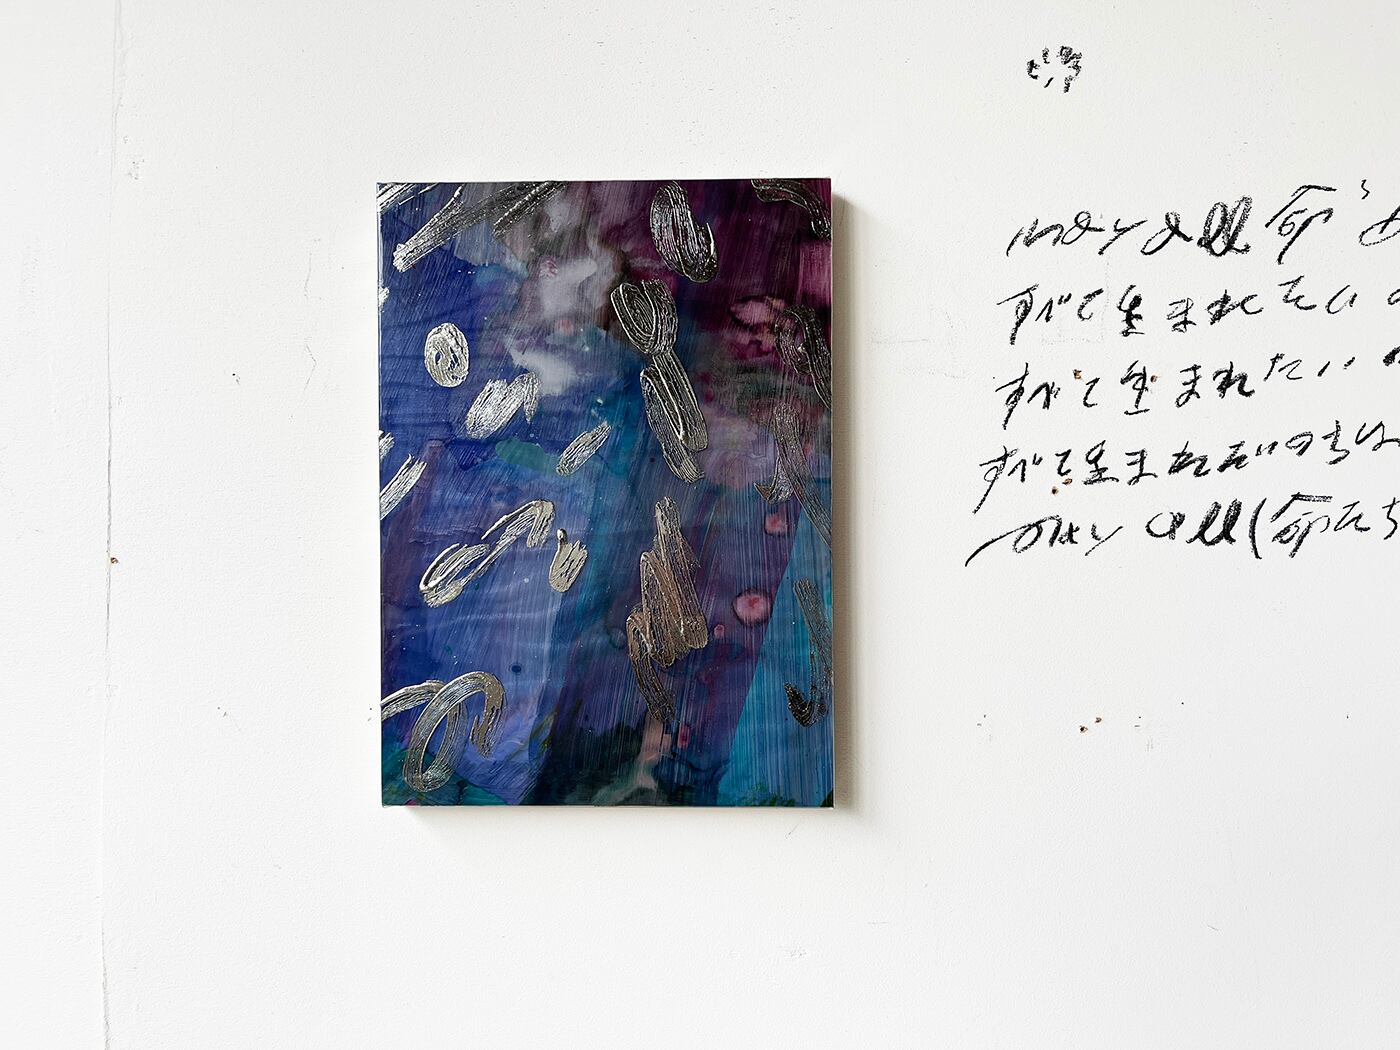 may all 命
すべて生まれたい
すべて生まれたい
すべて生まれたいのちは
may all (命たち